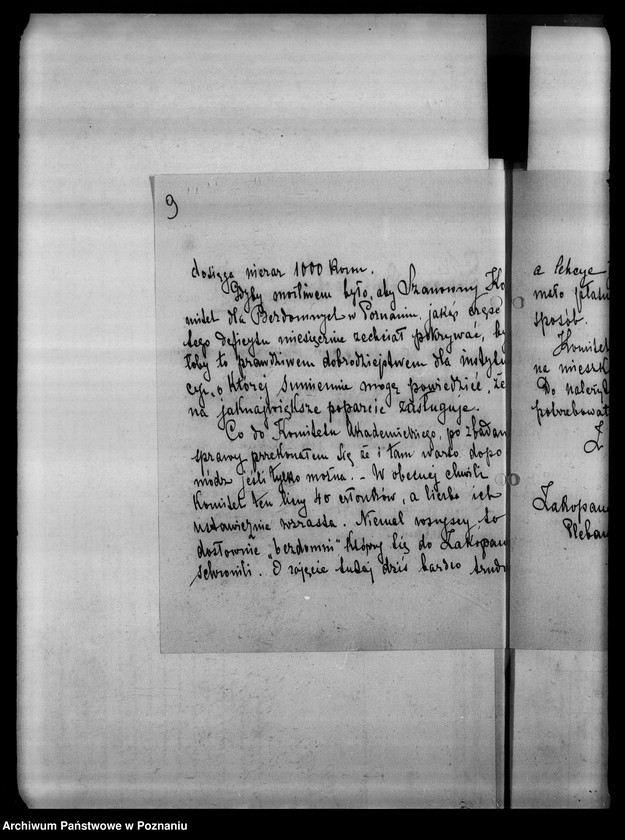 9
dosięga nieraz 1000 Koron.
Gdyby możliwem było, aby Szanowny Ko
mitet dla Bezdomnych w Poznaniu, jakąś częśc
tego deficytu miesięcznie zechciał pokrywać, by
łoby to prawdziwem dobrodziejstwem dla instytu
cyi, o której sumiennie mogę powiedzieć, że
na jaknajwiększe poparcie zasługuje.
Co do Komitetu Akademickiego, po zbadan
sprawy przekonałem się że i tam warto dopo
módz jeśli tylko można. - W obecnej chwili
Komitet ten liczy 40 członków, a liczba ich
ustawicznie wzrasta. Niemal wszyscy to
dosłownie „bezdomni" którzy się do Zakopan
schronili. O zajęcie tutaj dziś bardzo trudn
a lekcye
mało płatn
sposób.
Komitet
na mieszk
Do należyt
potrzebował
Z
Zakopan
Pleban
Archiwum Państwowe w Poznaniu